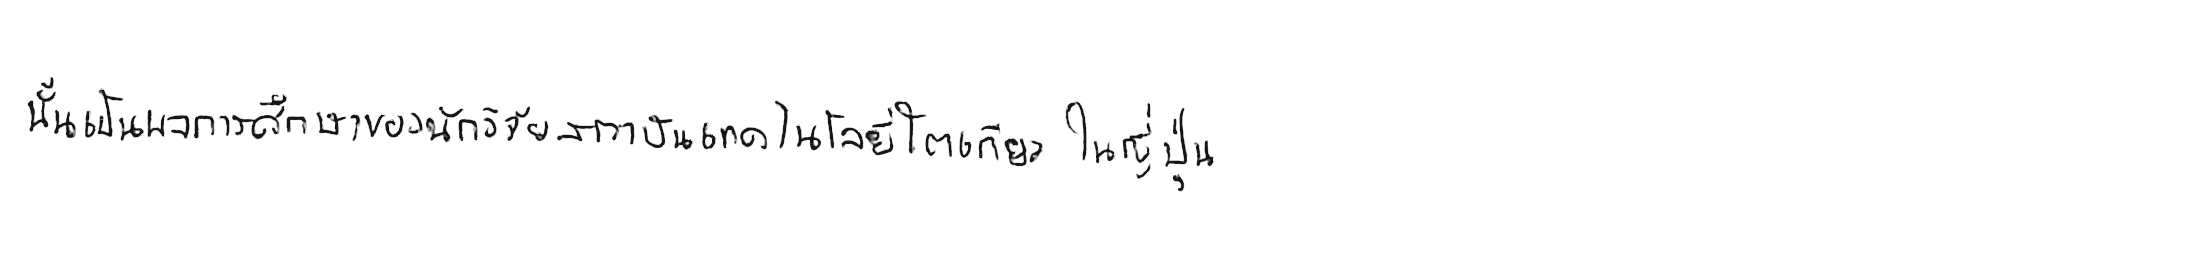 นั้นเป็นผลการศึกษาของนักวิจัยสถาบันเทคโนโลยีโตเกียว ในญี่ปุ่น